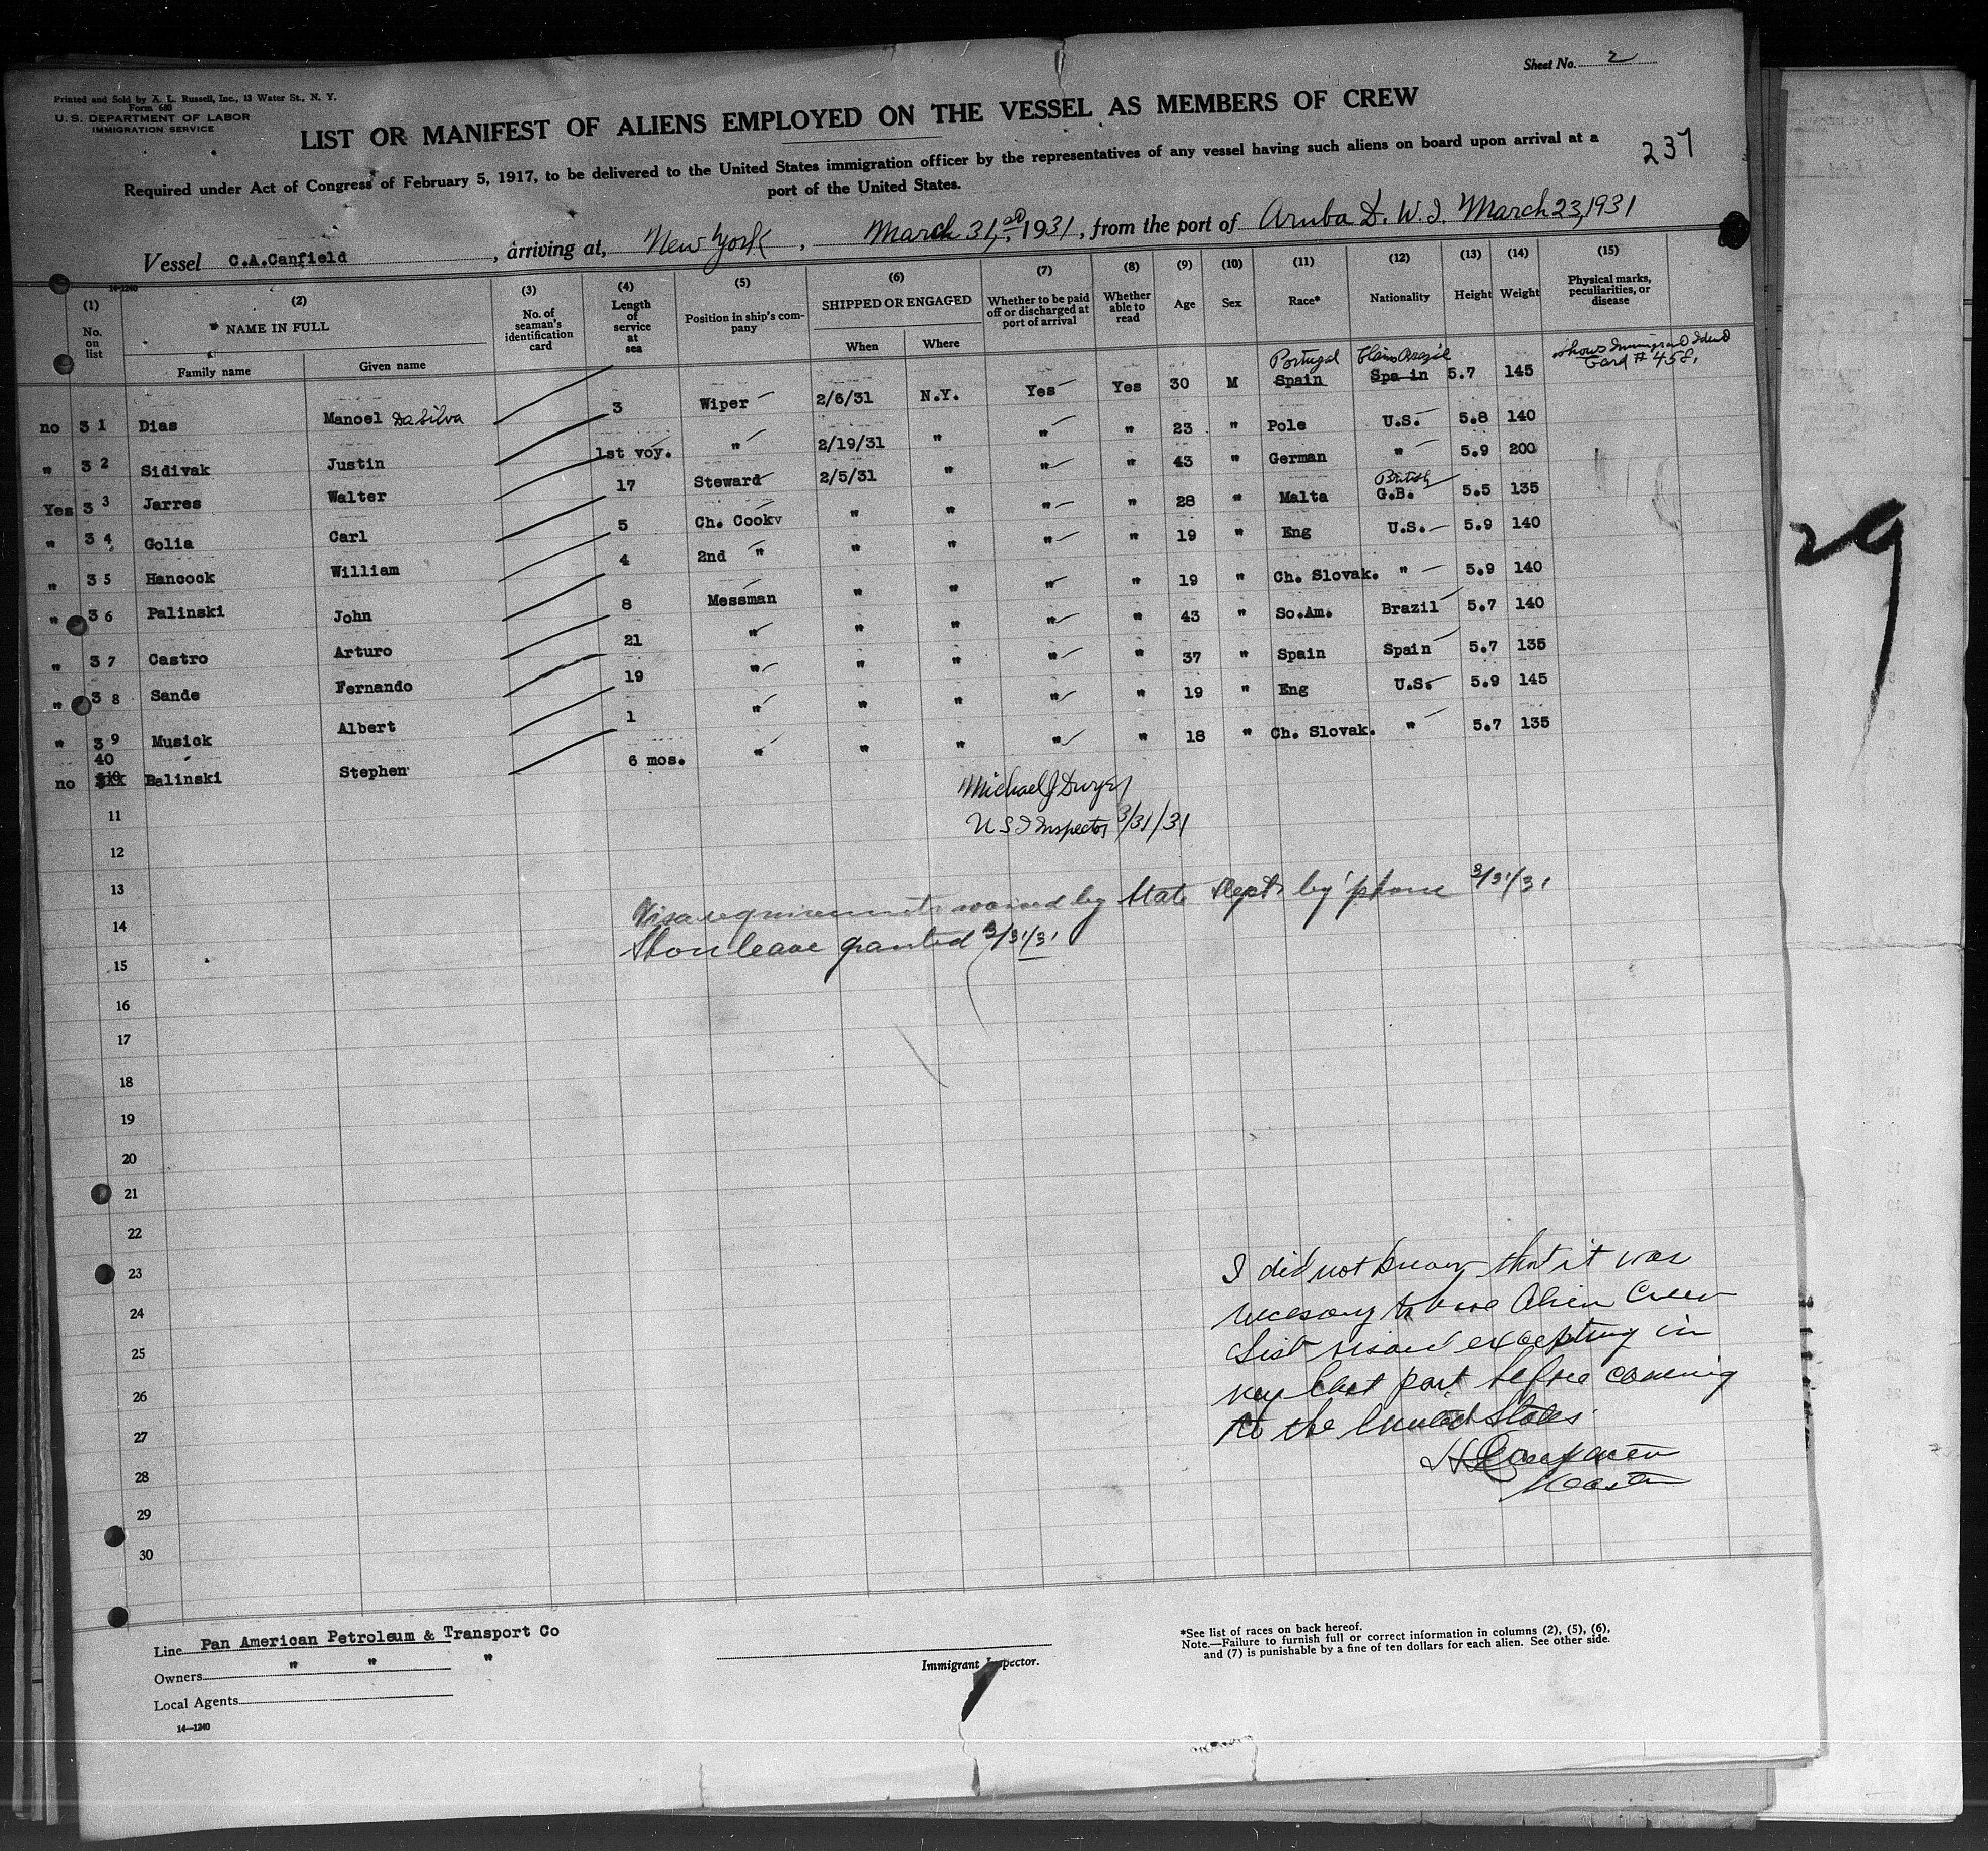 Sheet No. 2
Printed and Sold by X. L. Russell, Inc., 13 Water St., N. Y.
Form 680
U. S. DEPARTMENT OF LABOR
IMMIGRATION SERVICE
LIST OR MANIFEST OF ALIENS EMPLOYED ON THE VESSEL AS MEMBERS OF CREW
237
Required under Act of Congress of February 5, 1917, to be delivered to the United States immigration officer by the representatives of any vessel having such aliens on board upon arrival at a
port of the United States.
Vessel C.A.Canfield, arriving at, New York, March 31, 1931, from the port of Aruba D. W. I. March 23, 1931
14-1240
(1) (2) (3) (4) (5) (6) (7) (8) (9) (10) (11) (12) (13) (14) (15)
No. on list NAME IN FULL No. of seaman's identification card Length of service at sea Position in ship's company SHIPPED OR ENGAGED Whether to be paid off or discharged at port of arrival Whether able to read Age Sex Race* Nationality Height Weight Physical marks, peculiarities, or disease
Family name Given name When Where
Portugal Claims Brazil Shows Immigrant Ident
Card # 458
no 31 Dias Manoel Da Silva 3 Wiper 2/6/31 N.Y. Yes Yes 30 M Spain Spain 5.7 145
" 32 Sidivak Justin 1st voy. " 2/19/31 " " " 23 " Pole U.S. 5.8 140
Yes 33 Jarres Walter 17 Steward 2/5/31 " " " 43 " German " 5.9 200
" 34 Golia Carl 5 Ch. Cook " " " " 28 " Malta British G.B. 5.5 135
" 35 Hancock William 4 2nd " " " " " 19 " Eng U.S. 5.9 140
" 36 Palinski John 8 Messman " " " " 19 " Ch. Slovak. " 5.9 140
" 37 Castro Arturo 21 " " " " " 43 " So.Am. Brazil 5.7 140
" 38 Sande Fernando 19 " " " " " 37 " Spain Spain 5.7 135
" 39 Musick Albert 1 " " " " " 19 " Eng U.S. 5.9 145
40
no Balinski Stephen 6 mos. " " " " " 18 " Ch. Slovak. " 5.7 135
Michael J Dwyer
11
U S I Inspector 3/31/31
12
13
Visa requirements waived by State Dept by 'phone 3/31/31
14
Shore leave granted 3/31/31
15
16
17
18
19
20
21
22
23
24
25
26
27
28
29
30
I did not know that it was
necessary to have Alien Crew
List visaed excepting in
my last port before coming
to the United States.
Master
29
Line Pan American Petroleum & Transport Co
Owners " " "
Local Agents
14—1240
Immigrant Inspector.
*See list of races on back hereof.
Note.—Failure to furnish full or correct information in columns (2), (5), (6),
and (7) is punishable by a fine of ten dollars for each alien. See other side.